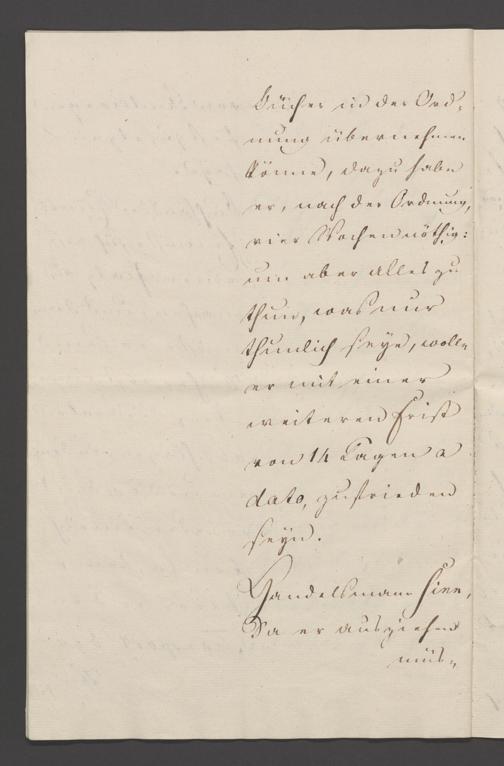 Bücher in der Ord-
nung übernehmen
könne, dazu habe
er, nach der Ordnung,
vier Wochen nöthig:
um aber alles zu
thun, was nur
thunlich seye, wolle
er mit einer
weiteren Frist
von 14 Tagen a
dato, zufrieden
seyn.
Handelsmann
Da er ausziehen
müs-